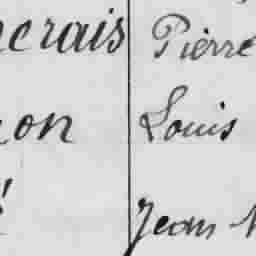 erais Pierre
on Louis
Jean